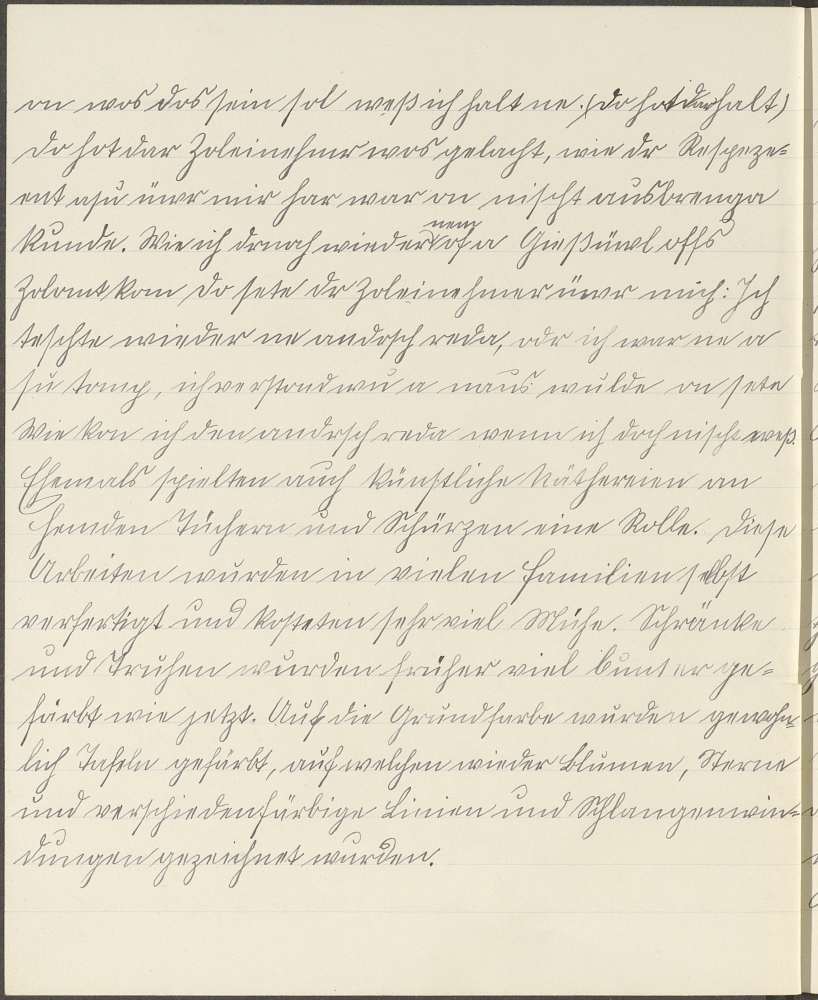 on wos dos sein sol weß ich halt ne. (Do hot dar halt)
Do hot dar Zoleinehmr wos gelacht, wie dr Respeze=
ent asu üwr mir har war on nischt ausbrenga
kunde. Wie ich drnoch wieder nem of a Gießüwl offs
Zolomt kom do sete dr Zoleinehmer üwr mich: Ich
teschte wieder ne andrsch reda, odr ich war ne a
su tomp, ich verstond wu a naus wulde on sete
Wie kon ich den andrsch reda wenn ich doch nischt weß.
Ehemals spielten auch künstliche Näthereien an
Hemden Tüchern und Schürzen eine Rolle. Diese
Arbeiten wurden in vielen Familien selbst
verfertigt und kosteten sehr viel Mühe. Schränke
und Truhen wurden früher viel bunter ge=
färbt wie jetzt. Auf die Grundfarbe wurden gewöhn=
lich Tafeln gefärbt, auf welchen wieder Blumen, Sterne
und verschiedenfärbige Linien und Schlangenwin=
dungen gezeichnet wurden.